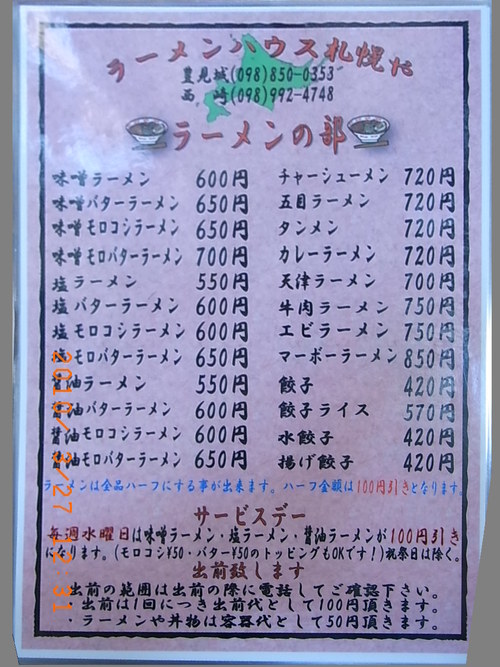 ラーメンハウス札幌や
豊見城(098)850-0353
西　崎(098)992-4748
ラーメンの部
味噌ラーメン 600円
味噌バターラーメン 650円
味噌モロコシラーメン 650円
味噌モロバターラーメン 700円
塩ラーメン 550円
塩バターラーメン 600円
塩モロコシラーメン 600円
塩モロバターラーメン 650円
醤油ラーメン 550円
醤油バターラーメン 600円
醤油モロコシラーメン 600円
醤油モロバターラーメン 650円
チャーシューメン 720円
五目ラーメン 720円
タンメン 720円
カレーラーメン 720円
天津ラーメン 700円
牛肉ラーメン 750円
エビラーメン 750円
マーボーラーメン 850円
餃子 420円
餃子ライス 570円
水餃子 420円
揚げ餃子 420円
ラーメンは全品ハーフにする事が出来ます。ハーフ金額は100円引きとなります。
サービスデー
毎週水曜日は味噌ラーメン・塩ラーメン・醤油ラーメンが100円引き
になります。(モロコシ¥50・バター¥50のトッピングもOKです!)祝祭日は除く。
出前致します
・出前の範囲は出前の際に電話してご確認下さい。
・出前は1回につき出前代として100円頂きます。
・ラーメンや丼物は容器代として50円頂きます。
2010/3/27 12:31